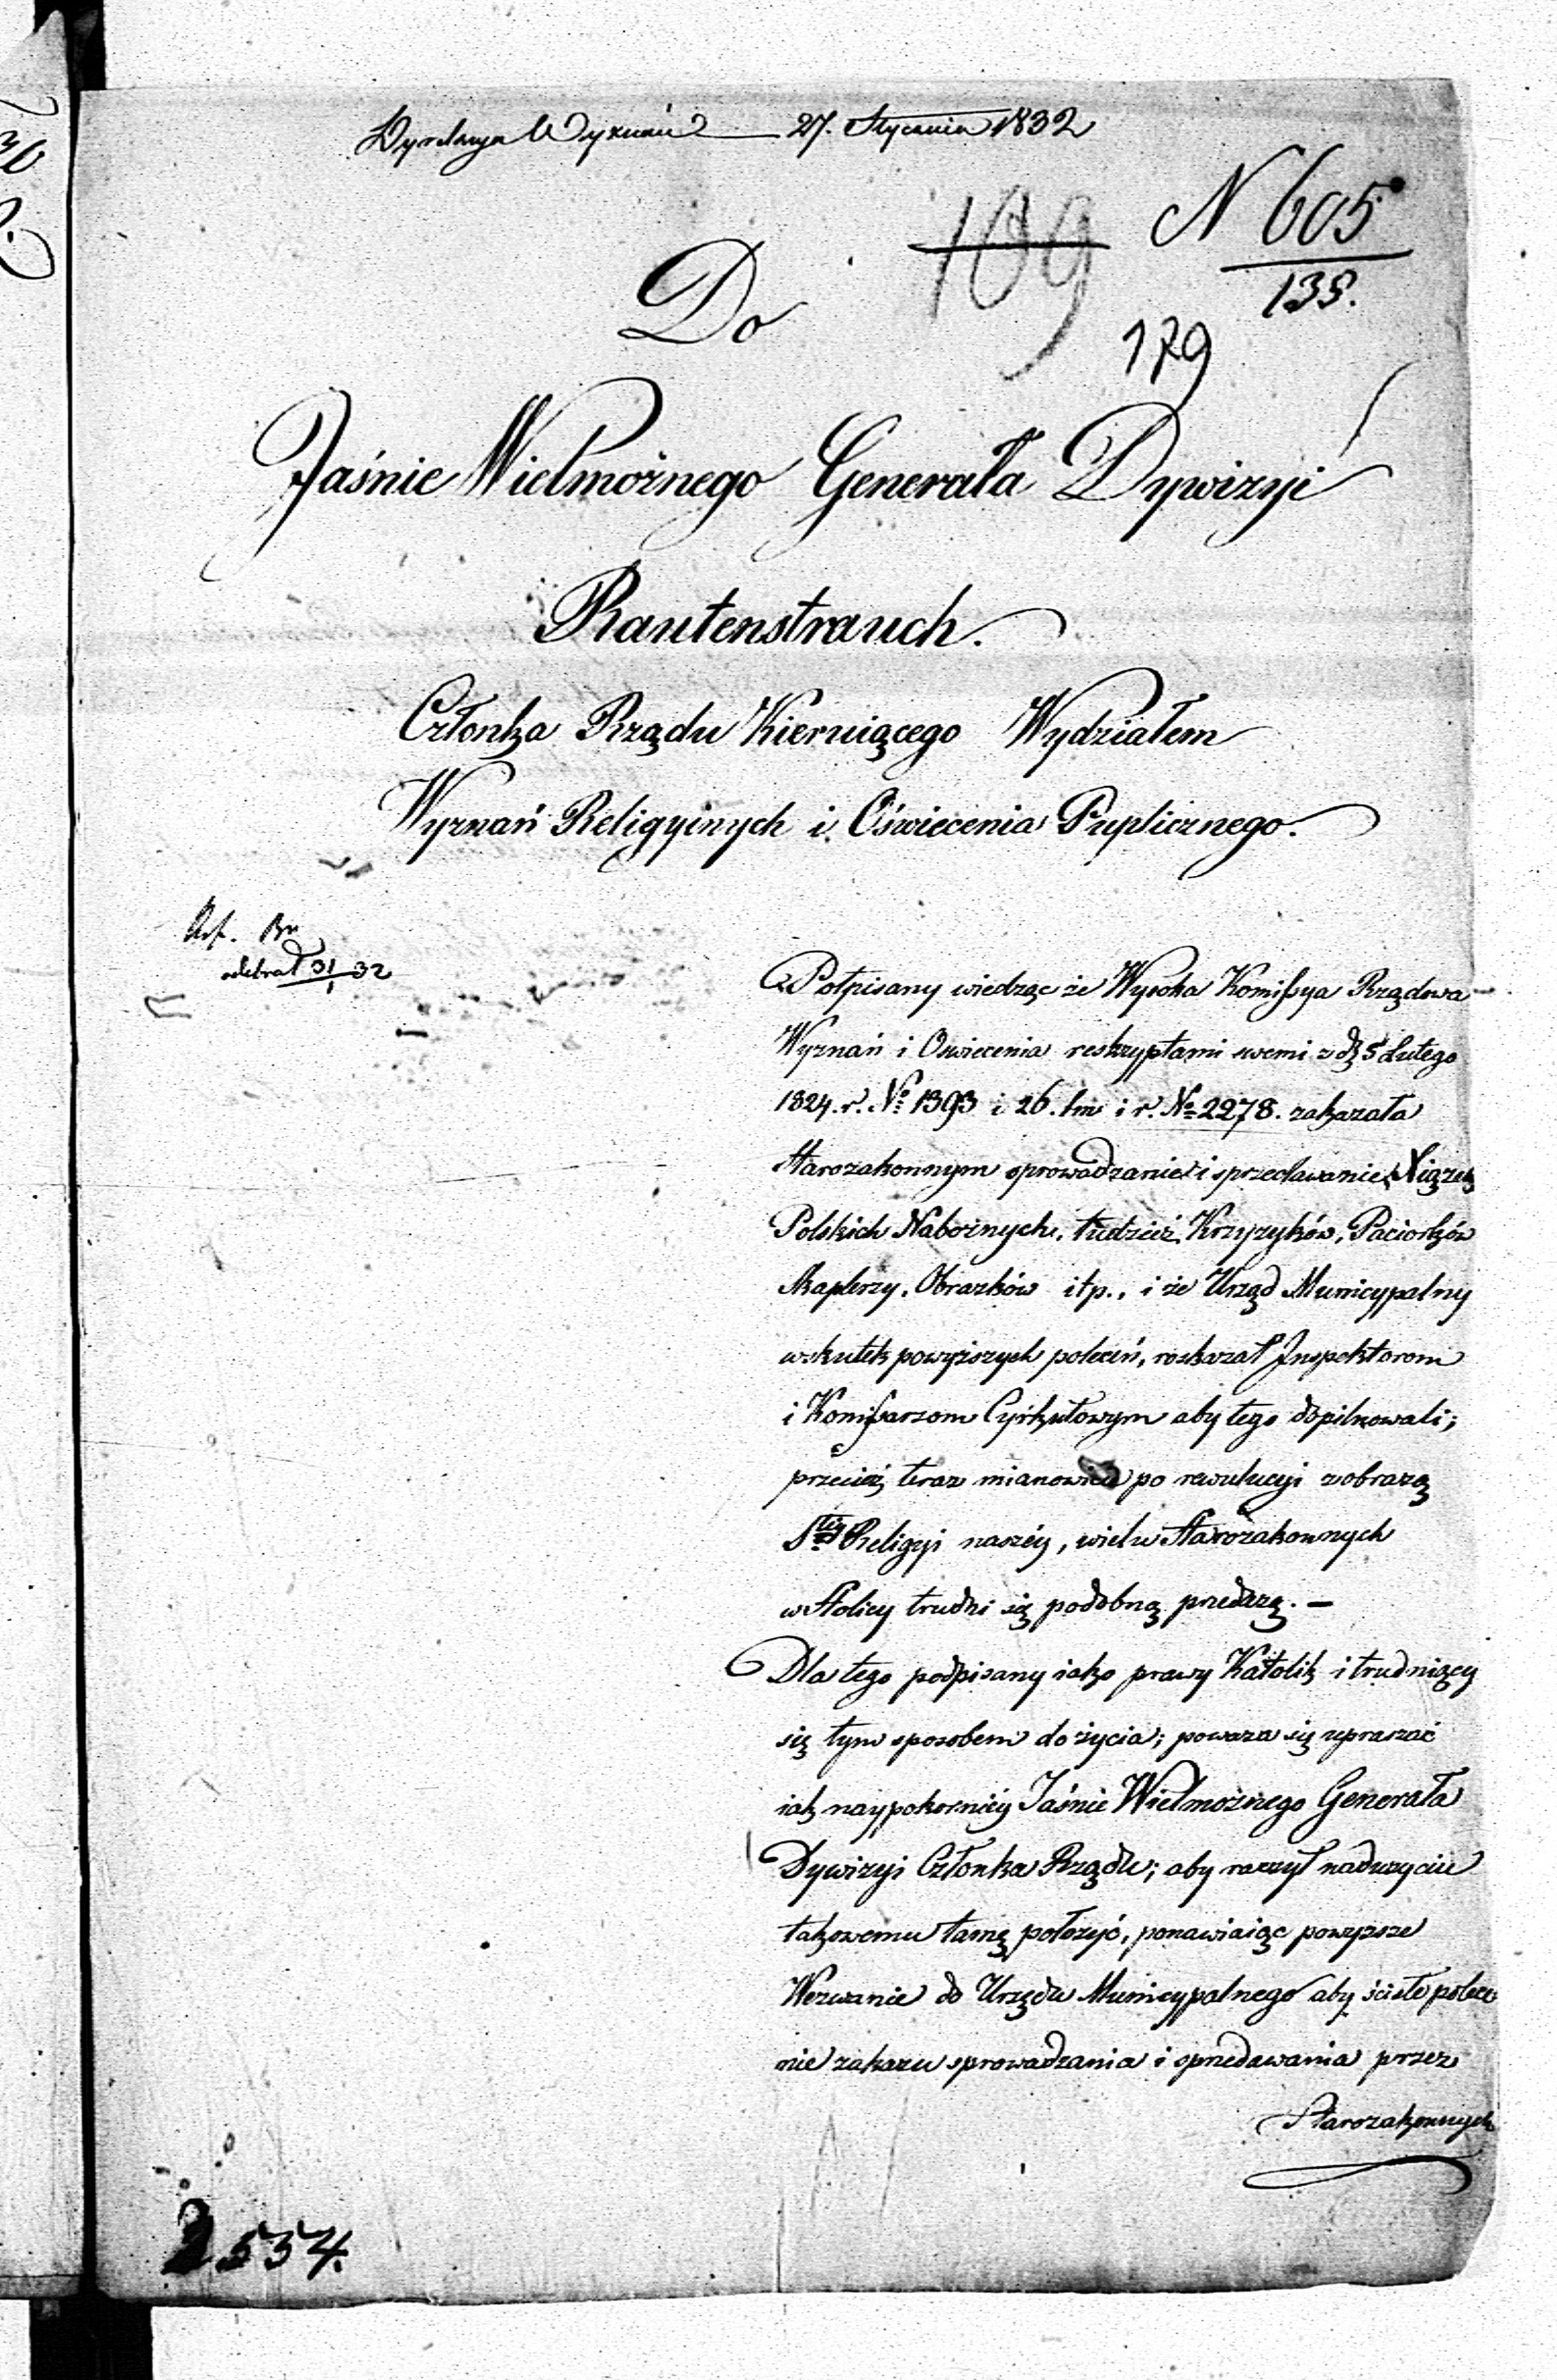 Dyrekcya Wyznań 27. Stycznia 1832
109 N 605
135.
179
Do
Jaśnie Wielmożnego Generała Dywizyi
Rautenstrauch.
Członka Rządu Kieruiącego Wydziałem
Wyznań Religyinych i Oświecenia Puplicznego.
odebrał 31/1 32
Potpisany wiedząc że Wysoka Komissya Rządowa
Wyznań i Oswiecenia reskryptami swemi z d. 5 Lutego
1824. r. No 1393 i 26. tm i r. No 2278. zakazała
Starozakonnym sprowadzanie i sprzedawanie Xiązek
Polskich Nabożnych, tudzież Krzyzyków, Paciorków
Skaplerzy, Obrazków itp., i że Urząd Municypalny
wskutek powyższych poleceń, roskazał Inspektorom
i Komissarzom Cyrkułowym aby tego dopilnowali;
przecież teraz mianowicie po rewulucyi z obrazą
Stéy Religyi naszéy, wielu Starozakonnych
w Stolicy trudni się podobną przedażą. —
Dla tego podpisany iako prawy Katolik i trudniący
się tym sposobem do życia; poważa się upraszać
iak naypokorniéy Jaśnie Wielmożnego Generała
Dywizyi Członka Rządu; aby raczył nadużyciu
takowemu tamę położyć, ponawiaiąc powyższe
Wezwanie do Urzędu Municypalnego aby ściśle polece
nie zakazu sprowadzania i sprzedawania przez
Starozakonnych
2554.